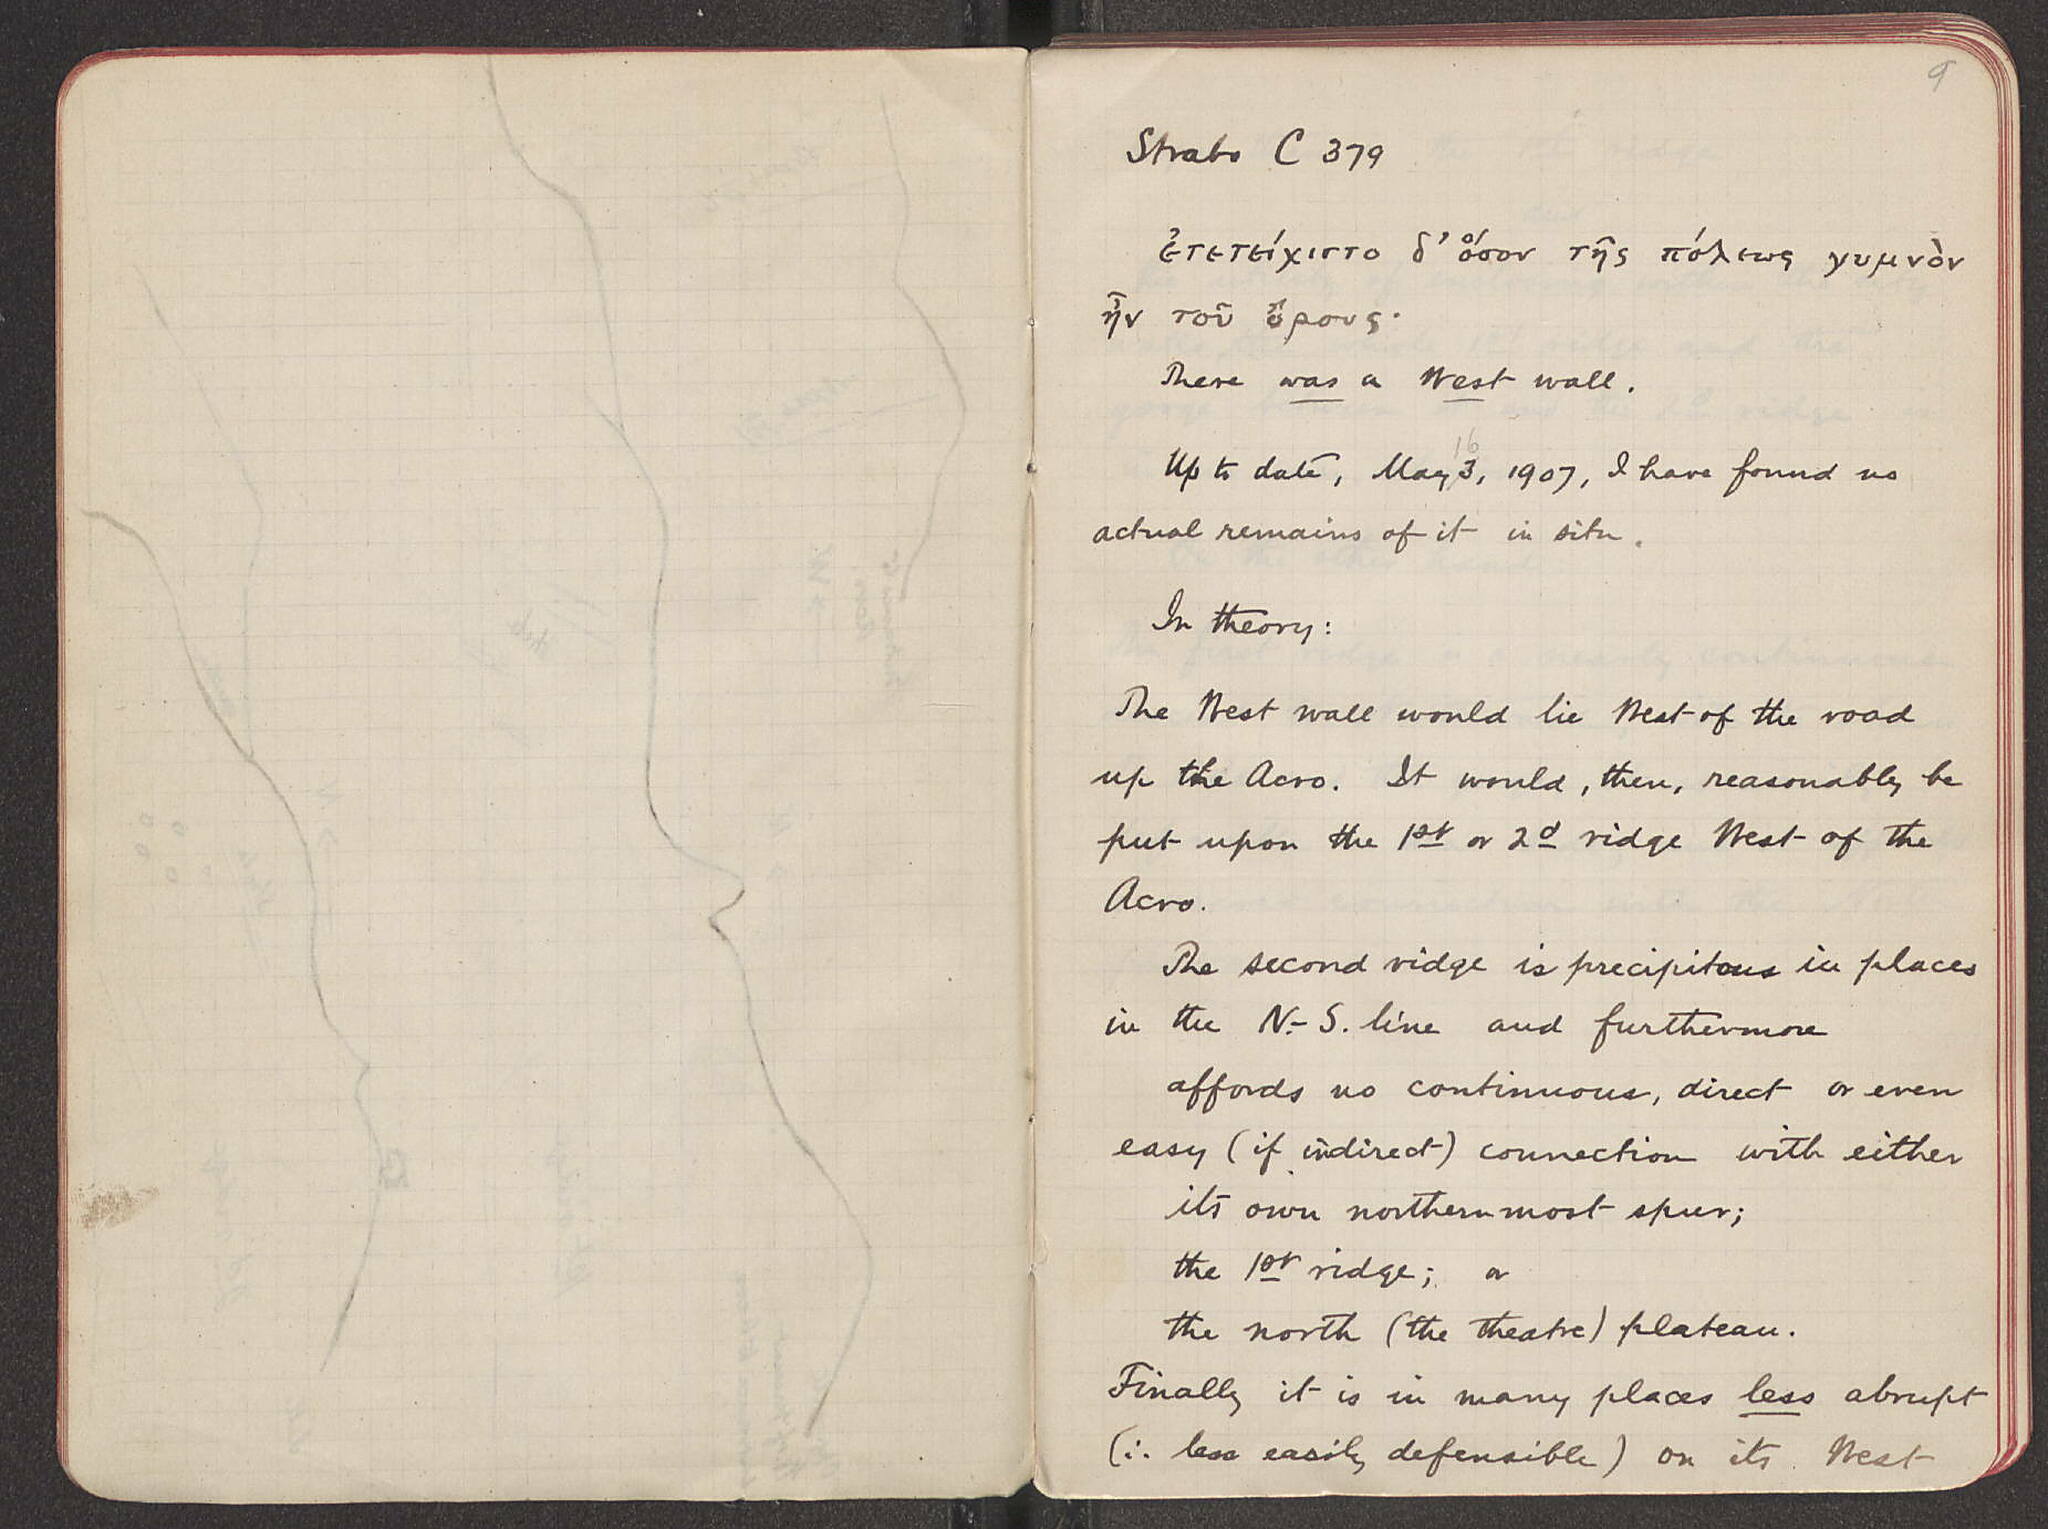 9
Strabo C 379
ἐτετείχιστο δ’ ὅσον τῆς πόλεως γυμνὸν
ἦν τοῦ ὄρους·
There was a West wall.
16
Up to date, May 3, 1907, I have found no
actual remains of it in situ.
In theory:
The West wall would lie West of the road
up the Acro. It would, then, reasonably be
put upon the 1st or 2d ridge West of the
Acro.
The second ridge is precipitous in places
in the N.-S. line and furthermore
affords no continuous, direct or even
easy (if indirect) connection with either
its own northernmost spur;
the 1st ridge; or
the north (the theatre) plateau.
Finally it is in many places less abrupt
(i. less easily defensible) on its West